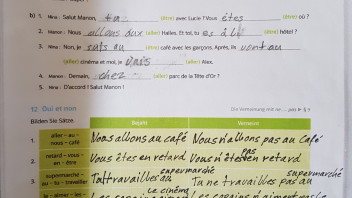 b) 1. Nina: Salut Manon, tu (être) avec Lucie ? Vous êtes (être) où ?
2. Manon: Nous allons aux (aller) Halles. Et toi, tu es à l' (être) hôtel ?
3. Nina: Non, je suis au (être) café avec les garçons. Après, ils vont au
(aller) cinéma et moi, je vais (aller) Alex.
4. Manon: Demain, chez (aller) parc de la Tête d'Or ?
5. Nina: D'accord ! Salut Manon !
12 Oui et non
Bilden Sie Sätze.
Bejaht Verneint
1. aller – au – nous – café Nous allons au café Nous n'allons pas au café
2. retard – vous – en – être Vous êtes en retard Vous n'êtes pas en retard
supermarché supermarché
3. supermarché – au – tu – travailler Tu travailles au Tu ne travailles pas au
Le cinéma